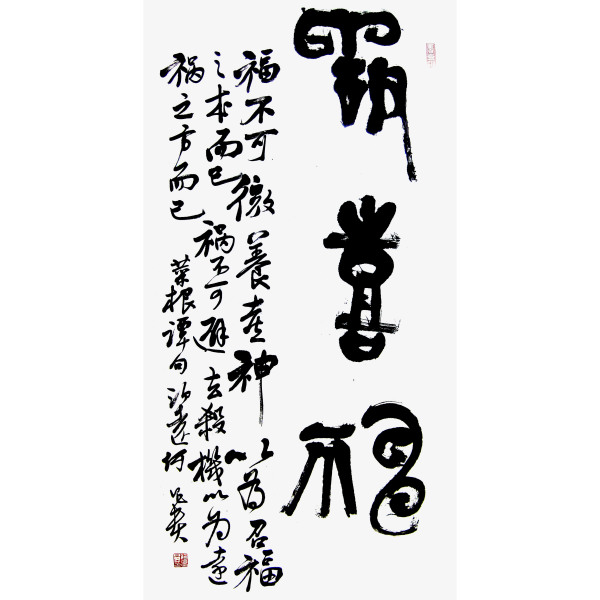 喜福
福不可徼養喜神以為召福
之本而已祸不可避去殺機以为遠
祸之方而已菜根谭句